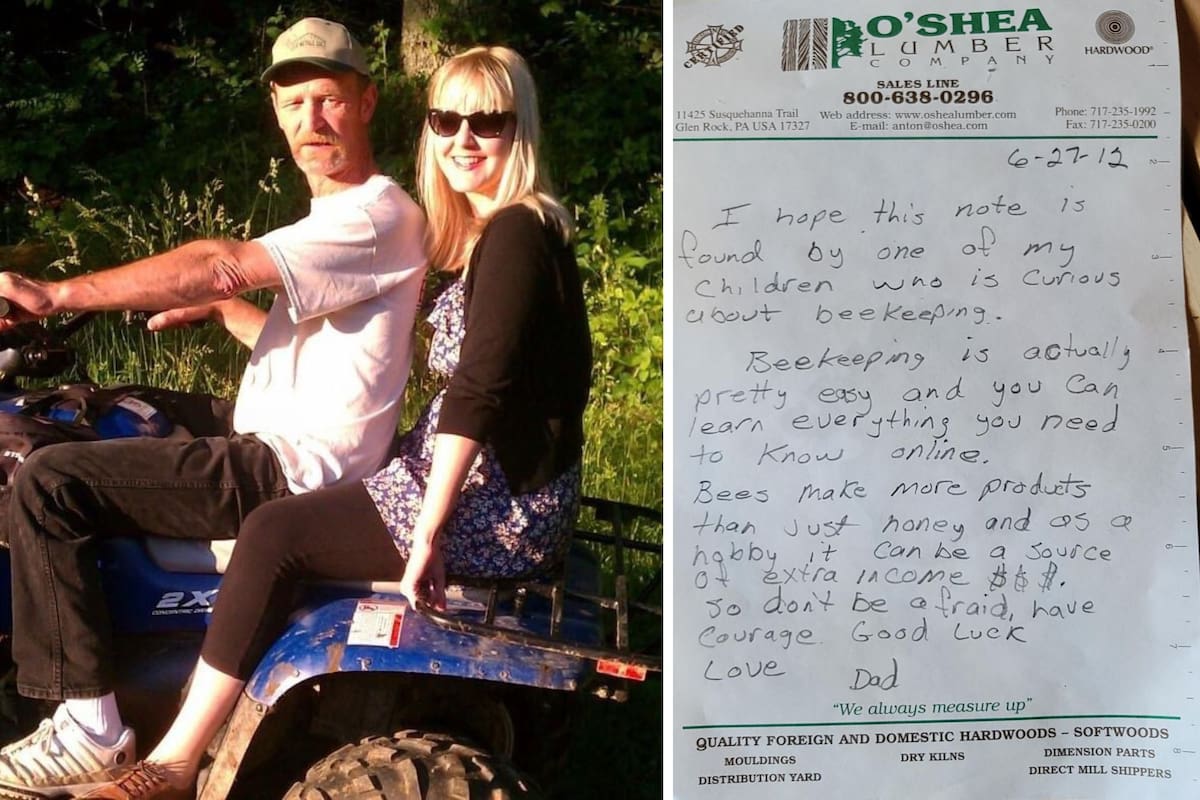 2X
CERTIFIED
O'SHEA
LUMBER
COMPANY
HARDWOOD
SALES LINE
800-638-0296
11425 Susquehanna Trail
Glen Rock, PA USA 17327
Web address: www.oshealumber.com
E-mail: anton@oshea.com
Phone: 717-235-1992
Fax: 717-235-0200
6-27-12
I hope this note is
found by one of my
children who is curious
about beekeeping.
Beekeeping is actually
pretty easy and you can
learn everything you need
to know online.
Bees make more products
than just honey and as a
hobby it can be a source
of extra income $$$.
So don't be afraid, have
courage. Good Luck
Love Dad
"We always measure up"
QUALITY FOREIGN AND DOMESTIC HARDWOODS – SOFTWOODS
MOULDINGS DRY KILNS DIMENSION PARTS
DISTRIBUTION YARD DIRECT MILL SHIPPERS